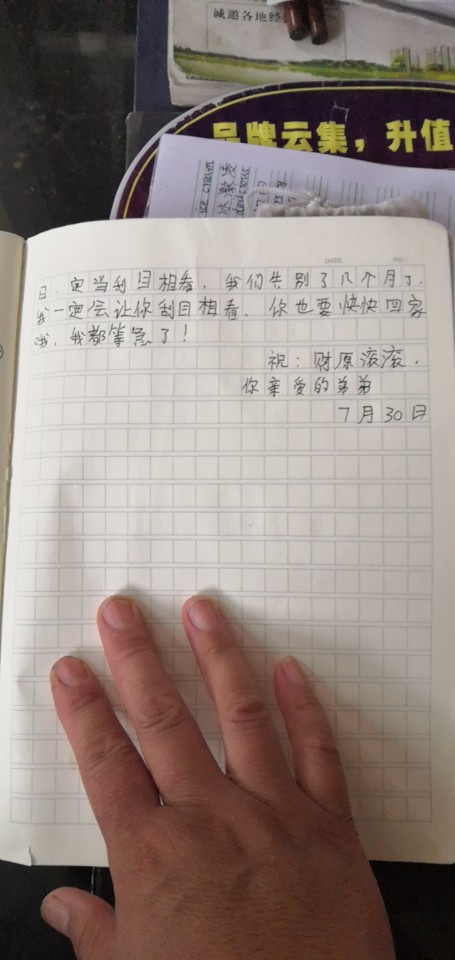 诚邀各地经
品牌云集，升值
冰激凌
DATE NO
日，定当刮目相看。我们告别了几个月了，
我一定会让你刮目相看。你也要快快回家
哦，我都等急了！
祝：财原滚滚。
你亲爱的弟弟
7月30日